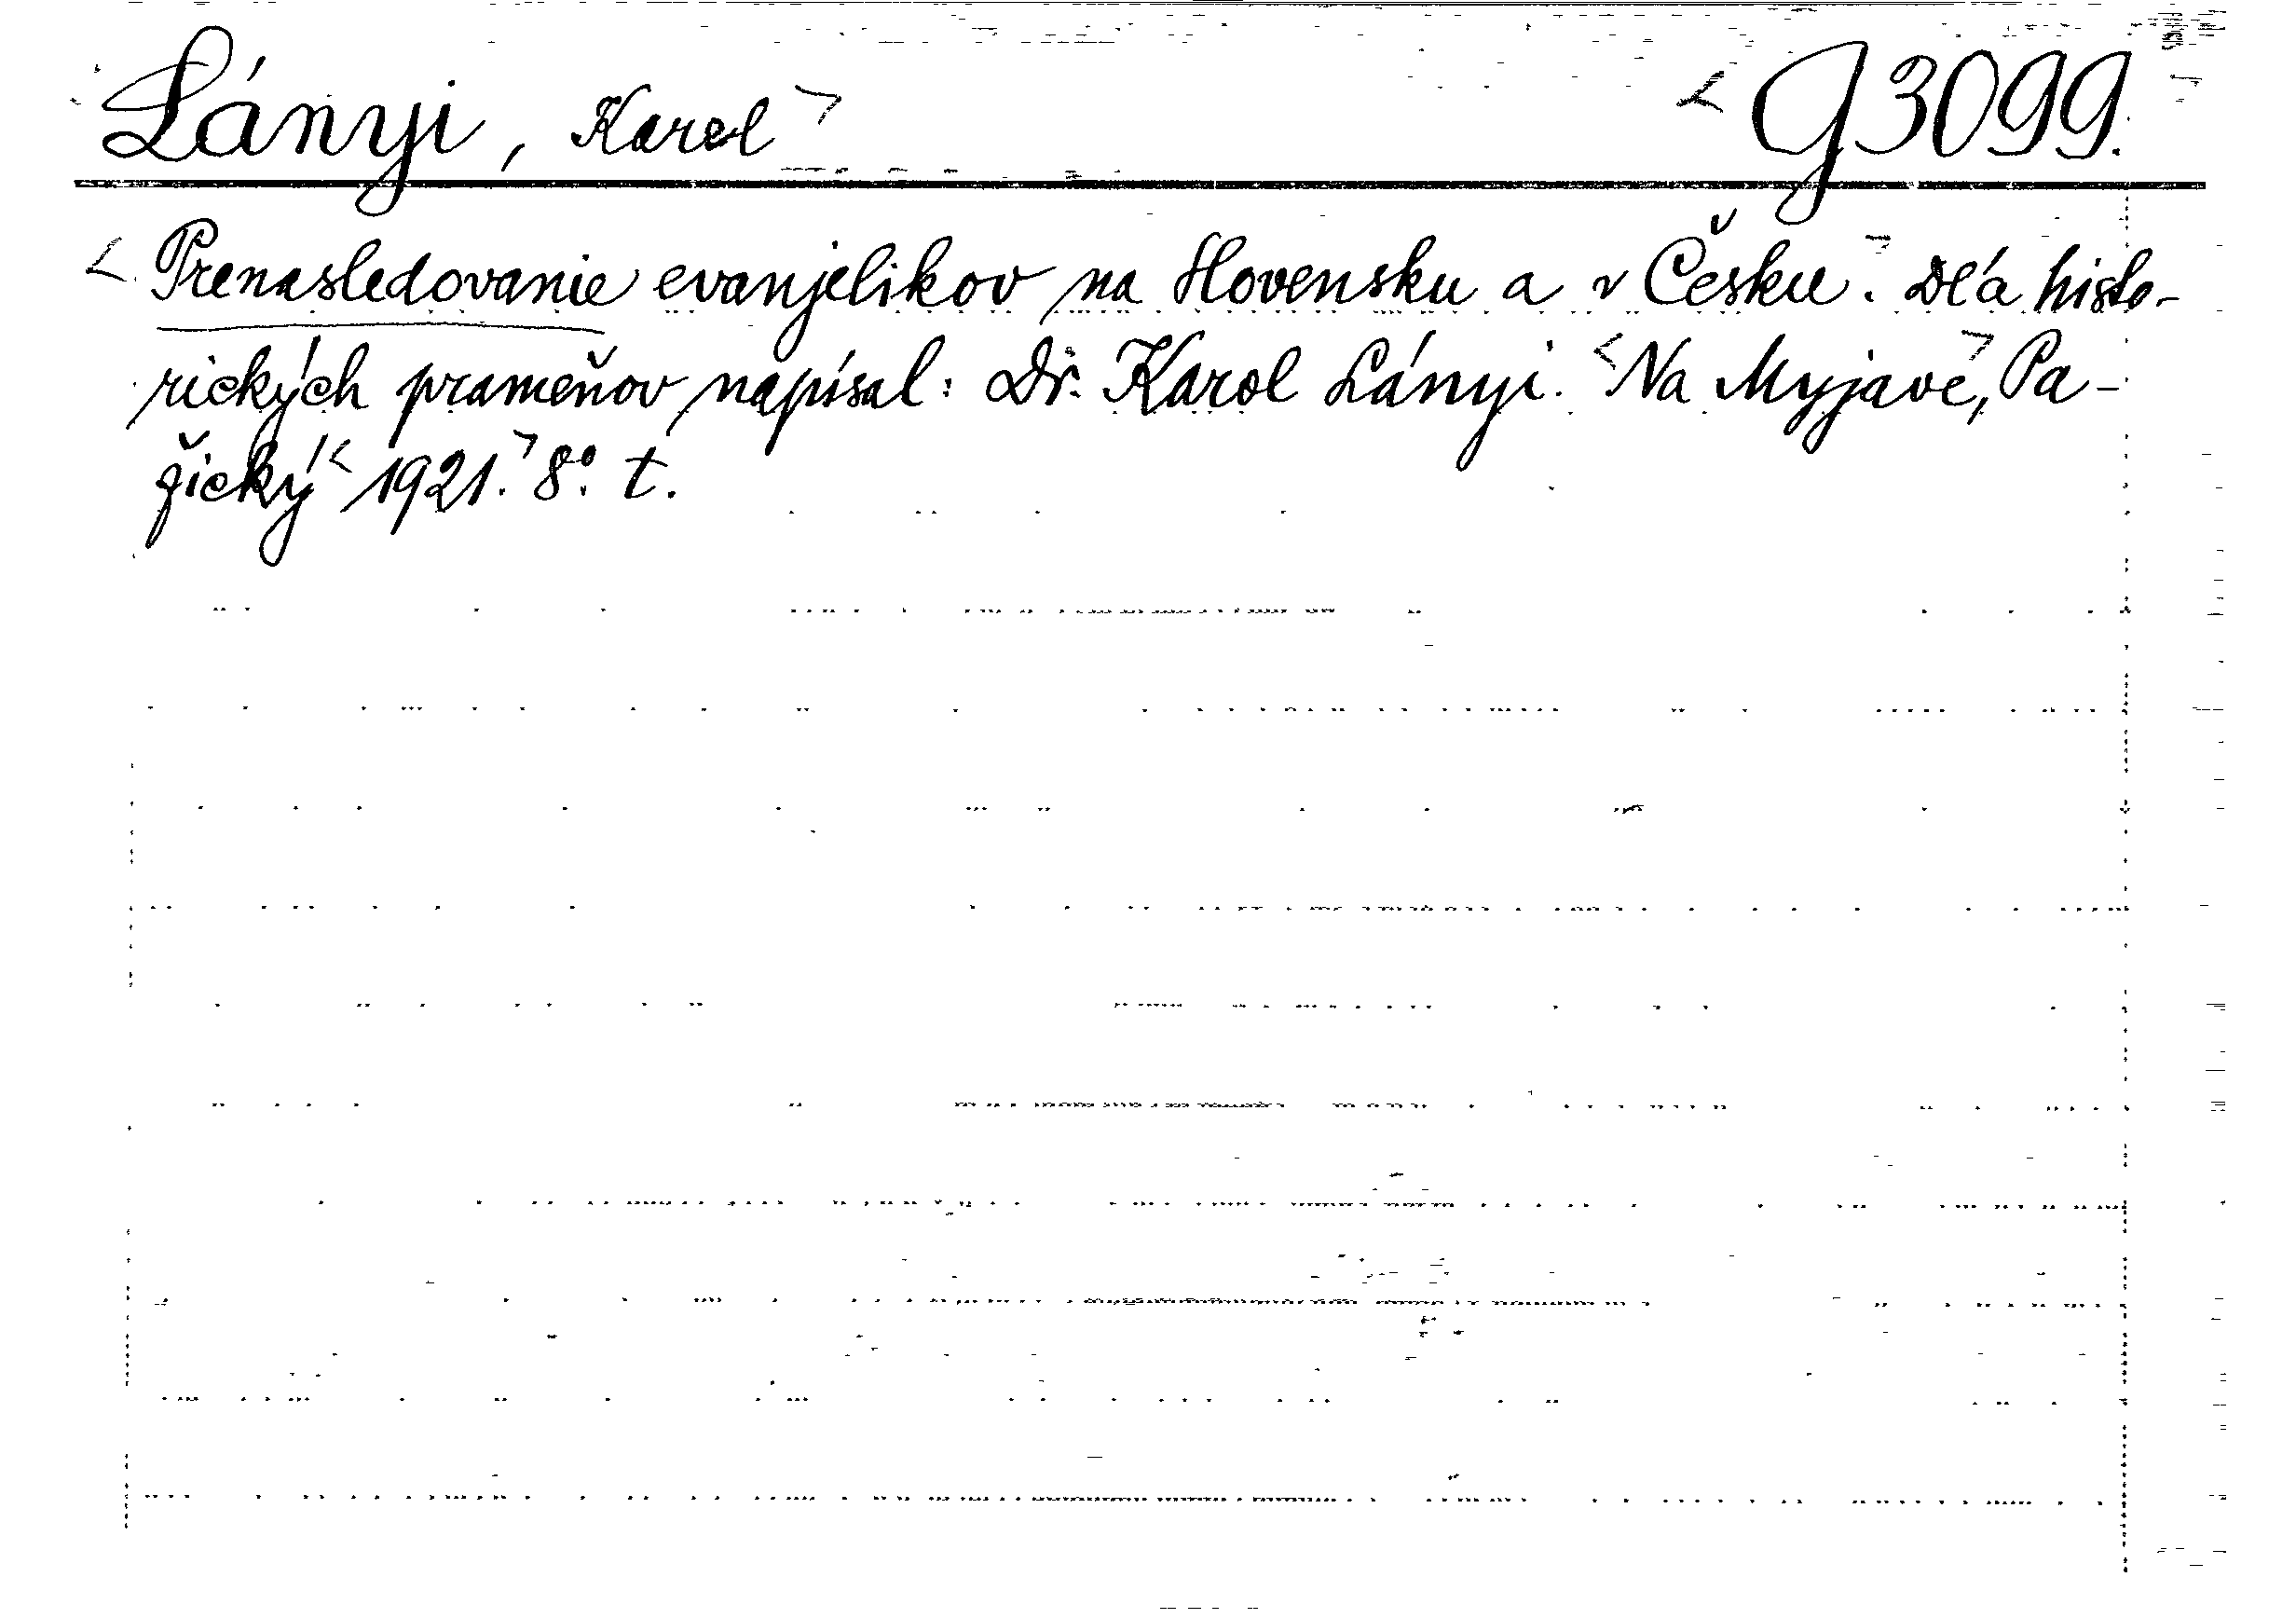 Lányi, Karol G 3099.
Prenasledovanie evanjelikov na Slovensku a v Česku. Dľa histo-
rických prameňov napísal: Dr. Karol Lányi. Na Myjave, Pa-
žický 1921. 8°. t.